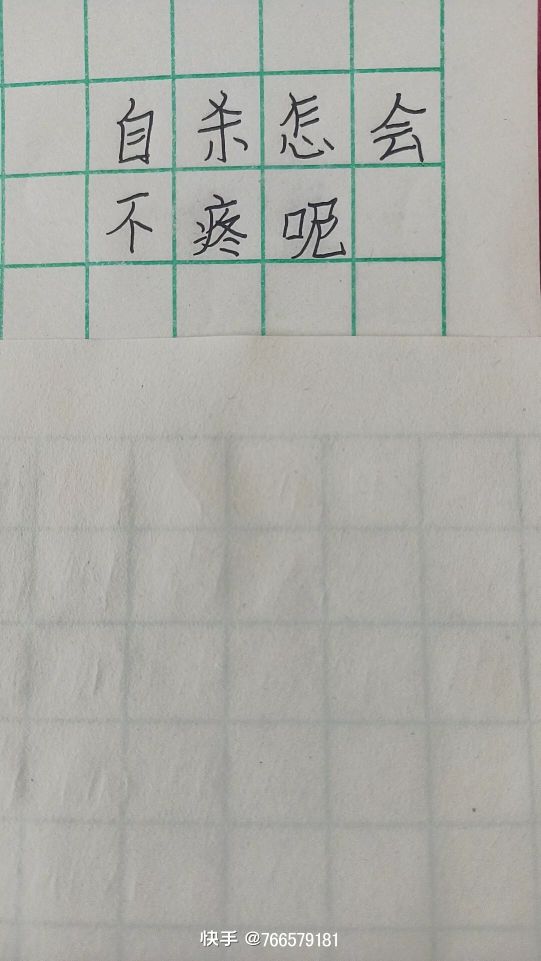 自杀怎会
不疼呢
快手 @766579181